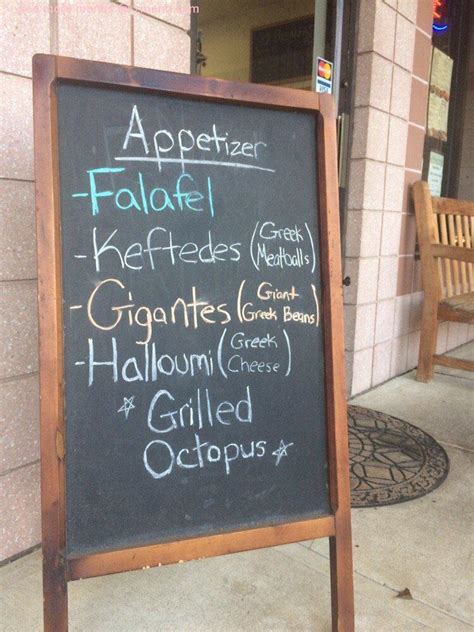 Appetizer
-Falafel
-Keftedes (Greek Meatballs)
-Gigantes (Giant Greek Beans)
-Halloumi (Greek Cheese)
☆ Grilled
Octopus ☆
MasterCard
VISA